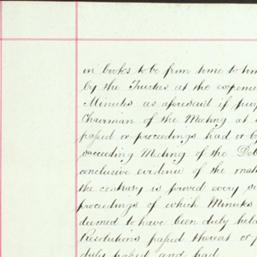 in books to be from time to tim
by the Trustees at the expense
Minutes as aforesaid if pur
Chairman of the Meeting at
passed or proceedings had or by
succeeding Meeting of the Deb
conclusive evidence of the matt
the contrary is proved every su
proceedings of which Minutes
deemed to have been duly held
Resolutions passed thereat or p
duly passed and had